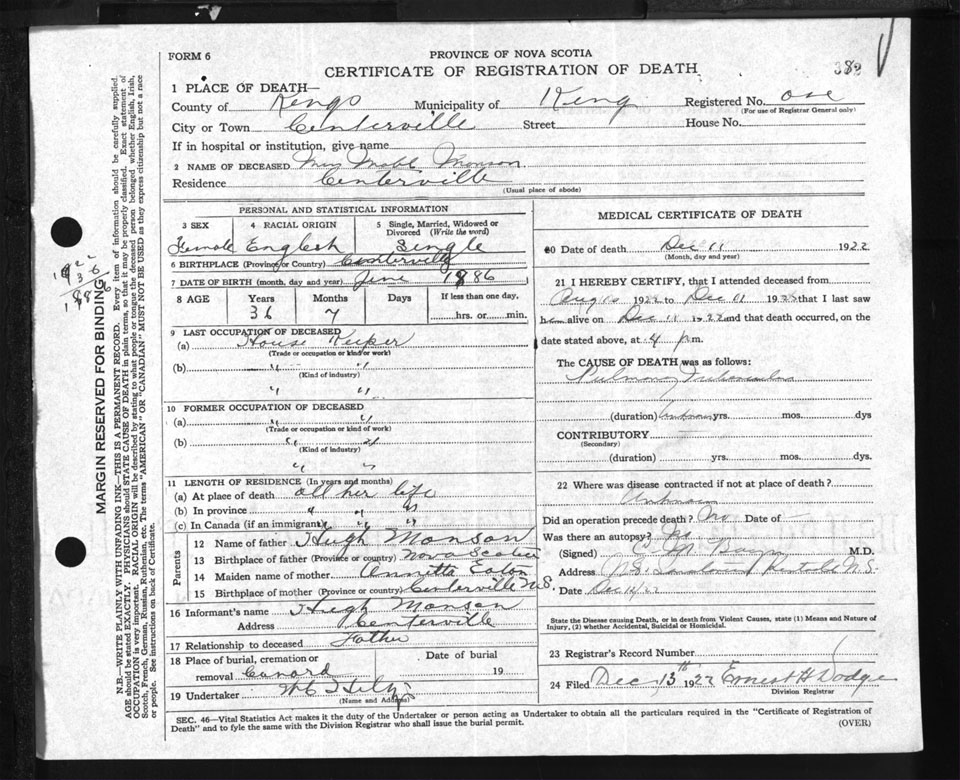 FORM 6
PROVINCE OF NOVA SCOTIA
CERTIFICATE OF REGISTRATION OF DEATH
382
1 PLACE OF DEATH—
County of Kings Municipality of King Registered No. one
(For use of Registrar General only)
City or Town Centerville Street House No.
If in hospital or institution, give name
2 NAME OF DECEASED Monson
Residence Centerville
(Usual place of abode)
PERSONAL AND STATISTICAL INFORMATION
3 SEX 4 RACIAL ORIGIN 5 Single, Married, Widowed or Divorced (Write the word)
Female English Single
6 BIRTHPLACE (Province or Country) Centerville
7 DATE OF BIRTH (month, day and year) June 1886
8 AGE Years Months Days If less than one day,
36 7 hrs. or min.
9 LAST OCCUPATION OF DECEASED
(a) House Keeper
(Trade or occupation or kind of work)
(b) " "
(Kind of industry)
" "
10 FORMER OCCUPATION OF DECEASED
(a) " "
(Trade or occupation or kind of work)
(b) " "
(Kind of industry)
" "
11 LENGTH OF RESIDENCE (In years and months)
(a) At place of death all her life
(b) In province " " "
(c) In Canada (if an immigrant) " " "
Parents
12 Name of father Hugh Monson
13 Birthplace of father (Province or country) Nova Scotia
14 Maiden name of mother Annetta Eaton
15 Birthplace of mother (Province or country) Centerville N.S.
16 Informant's name Hugh Monson
Address Centerville
17 Relationship to deceased Father
18 Place of burial, cremation or removal Canard Date of burial 19
19 Undertaker
(Name and Address)
MEDICAL CERTIFICATE OF DEATH
20 Date of death Dec 11 1922
(Month, day and year)
21 I HEREBY CERTIFY, that I attended deceased from
1922 to Dec 11 19 that I last saw
alive on Dec 11 1922 and that death occurred, on
date stated above, at 4 p.m.
The CAUSE OF DEATH was as follows:
Pulmonary Tuberculosis
(duration) Unknown yrs. mos. dys
CONTRIBUTORY
(Secondary)
(duration) yrs. mos. dys.
22 Where was disease contracted if not at place of death?
Unknown
Did an operation precede death? No Date of
Was there an autopsy? No
(Signed) M.D.
Address N.S. Kentville N.S.
Date Dec 22
State the Disease causing Death, or in death from Violent Causes, state (1) Means and Nature of Injury, (2) whether Accidental, Suicidal or Homicidal.
23 Registrar's Record Number
24 Filed Dec 13th 1922 Ernest H Dodge
Division Registrar
SEC. 46—Vital Statistics Act makes it the duty of the Undertaker or person acting as Undertaker to obtain all the particulars required in the "Certificate of Registration of
Death" and to fyle the same with the Division Registrar who shall issue the burial permit.
(OVER)
MARGIN RESERVED FOR BINDING
N.B.—WRITE PLAINLY WITH UNFADING INK—THIS IS A PERMANENT RECORD. Every item of information should be carefully supplied.
AGE should be stated EXACTLY. PHYSICIANS should STATE CAUSE OF DEATH in plain terms, so that it may be properly classified. Exact statement of
OCCUPATION is very important. RACIAL ORIGIN will be described by stating to what people or tongue the deceased person belonged whether English, Irish,
Scotch, French, German, Russian, Ruthenian, etc. The terms "AMERICAN" OR "CANADIAN" MUST NOT BE USED as they express citizenship but not a race
or people. See instructions on back of Certificate.